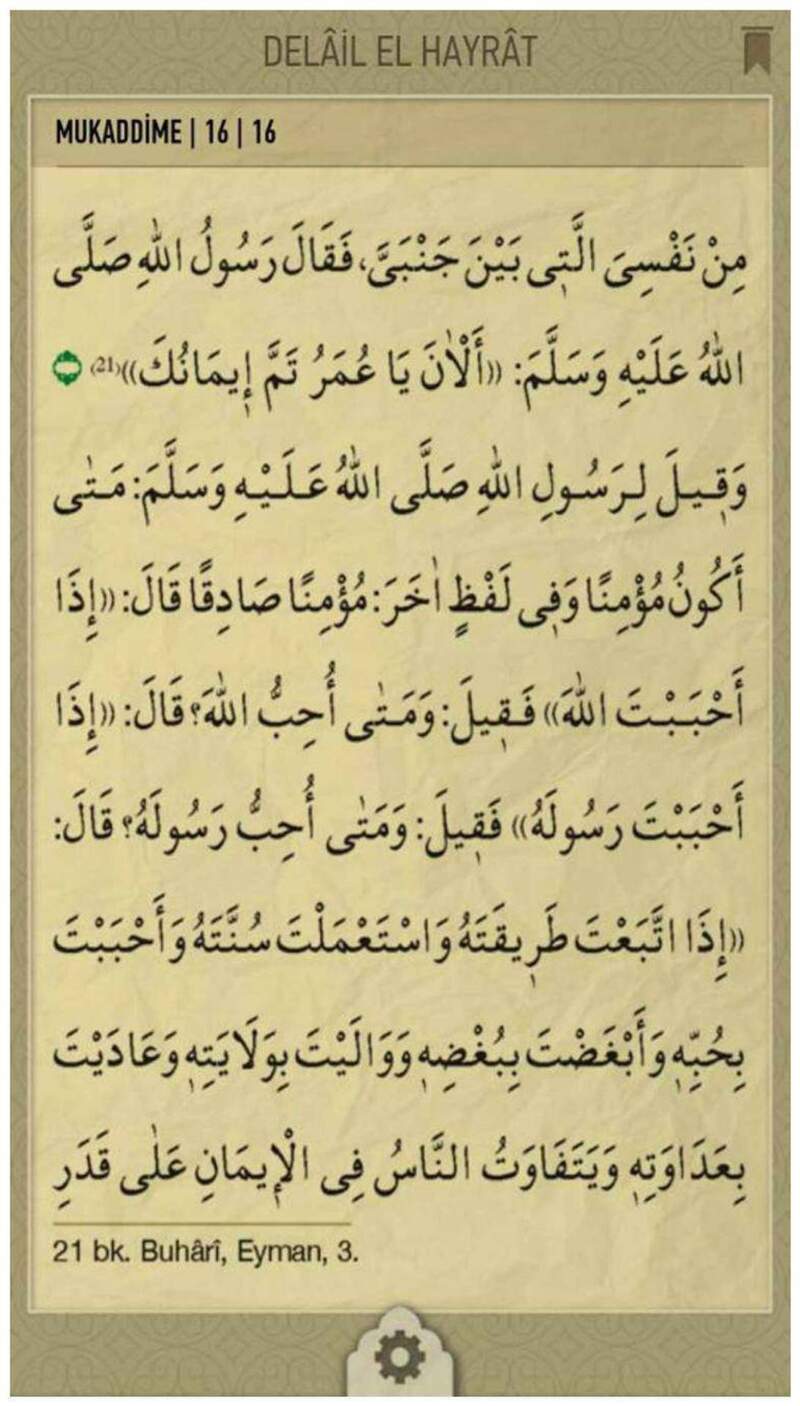 DELÂİL EL HAYRÂT
MUKADDİME | 16 | 16
مِنْ نَفْسِىَ الَّتِى بَيْنَ جَنْبَىَّ، فَقَالَ رَسُولُ اللهِ صَلَّى
اللهُ عَلَيْهِ وَسَلَّمَ: ((أَلْاٰنَ يَا عُمَرُ تَمَّ إِيمَانُكَ))(21)
وَقِيلَ لِرَسُولِ اللهِ صَلَّى اللهُ عَلَيْهِ وَسَلَّمَ: مَتٰى
أَكُونُ مُؤْمِنًا وَفِى لَفْظٍ اٰخَرَ: مُؤْمِنًا صَادِقًا قَالَ: ((إِذَا
أَحْبَبْتَ اللهَ)) فَقِيلَ: وَمَتٰى أُحِبُّ اللهَ؟ قَالَ: ((إِذَا
أَحْبَبْتَ رَسُولَهُ)) فَقِيلَ: وَمَتٰى أُحِبُّ رَسُولَهُ؟ قَالَ:
((إِذَا اتَّبَعْتَ طَرِيقَتَهُ وَاسْتَعْمَلْتَ سُنَّتَهُ وَأَحْبَبْتَ
بِحُبِّهِ وَأَبْغَضْتَ بِبُغْضِهِ وَوَالَيْتَ بِوَلَايَتِهِ وَعَادَيْتَ
بِعَدَاوَتِهِ وَيَتَفَاوَتُ النَّاسُ فِى الْإِيمَانِ عَلٰى قَدَرِ
21 bk. Buhârî, Eyman, 3.